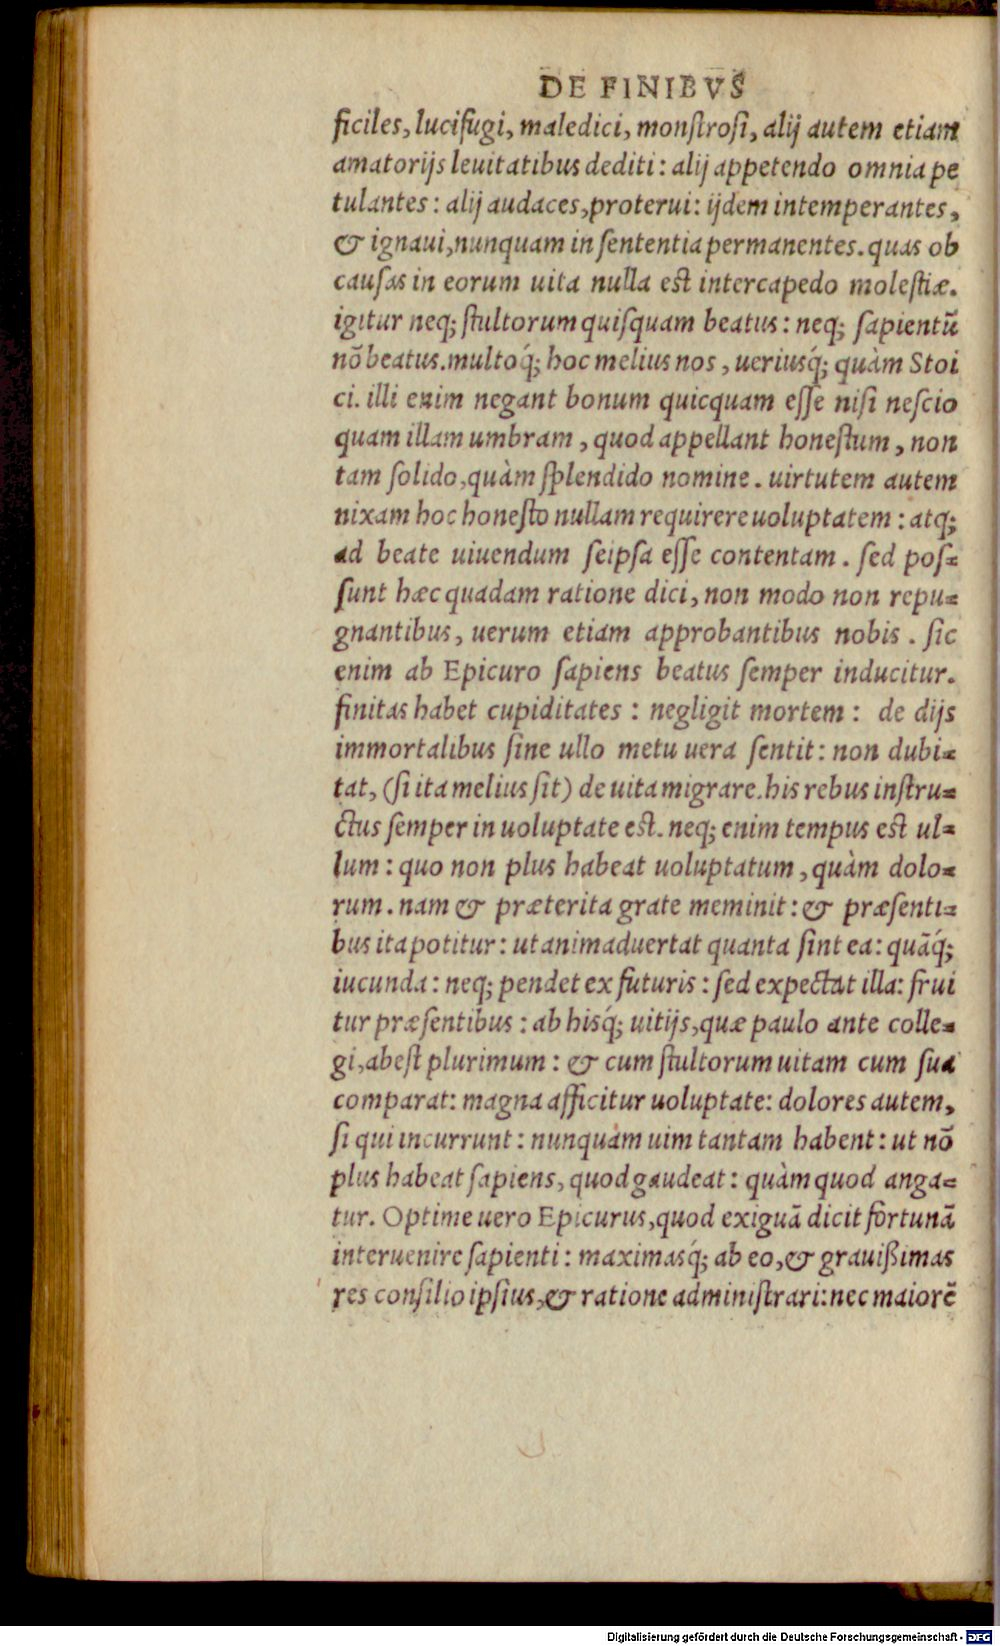 DE FINIBVS
ficiles, lucifugi, maledici, monſtroſi, alij autem etiam
amatorijs leuitatibus dediti: alij appetendo omnia pe
tulantes: alij audaces, proterui: ijdem intemperantes,
& ignaui, nunquam in ſententia permanentes. quas ob
cauſas in eorum uita nulla eſt intercapedo moleſtiæ.
igitur neq; ſtultorum quiſquam beatus: neq; ſapientū
nō beatus. multoq́; hoc melius nos, ueriusq́; quàm Stoi
ci. illi enim negant bonum quicquam eſſe niſi neſcio
quam illam umbram, quod appellant honeſtum, non
tam ſolido, quàm ſplendido nomine. uirtutem autem
nixam hoc honeſto nullam requirere uoluptatem: atq;
ad beate uiuendum ſeipſa eſſe contentam. ſed poſ=
ſunt hæc quadam ratione dici, non modo non repu=
gnantibus, uerum etiam approbantibus nobis. ſic
enim ab Epicuro ſapiens beatus ſemper inducitur.
finitas habet cupiditates: negligit mortem: de dijs
immortalibus ſine ullo metu uera ſentit: non dubi=
tat, (ſi ita melius ſit) de uita migrare. his rebus inſtru=
ctus ſemper in uoluptate eſt. neq; enim tempus eſt ul=
lum: quo non plus habeat uoluptatum, quàm dolo=
rum. nam & præterita grate meminit: & præſenti=
bus ita potitur: ut animaduertat quanta ſint ea: quāq́;
iucunda: neq; pendet ex futuris: ſed expectat illa: frui
tur præſentibus: ab hisq́; uitijs, quæ paulo ante colle=
gi, abeſt plurimum: & cum ſtultorum uitam cum ſua
comparat: magna afficitur uoluptate: dolores autem,
ſi qui incurrunt: nunquam uim tantam habent: ut nō
plus habeat ſapiens, quod gaudeat: quàm quod anga=
tur. Optime uero Epicurus, quod exiguā dicit fortunā
interuenire ſapienti: maximasq́; ab eo, & grauißimas
res conſilio ipſius, & ratione adminiſtrari: nec maiorē
Digitalisierung gefördert durch die Deutsche Forschungsgemeinschaft - DFG